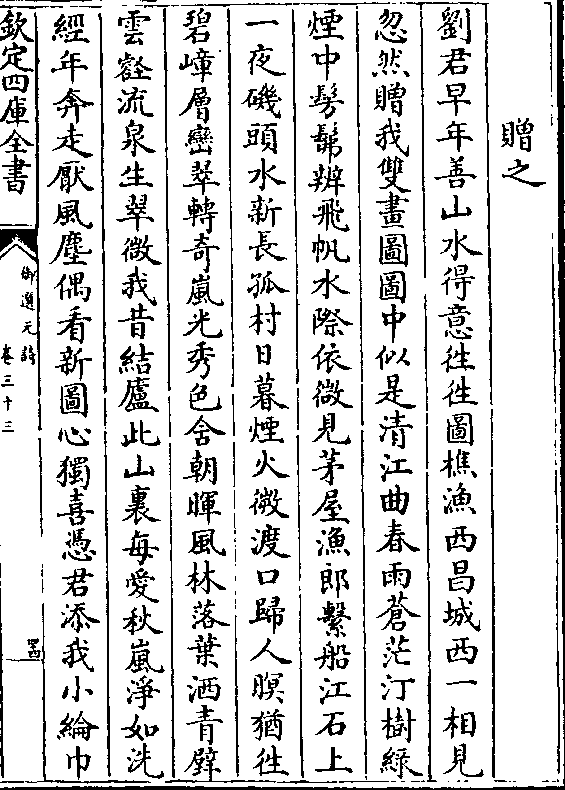 贈之
劉君早年善山水得意徃徃圖樵漁西昌城西一相見
忽然贈我雙畫圖圖中似是清江曲春雨蒼茫汀樹綠
煙中髣髴辨飛帆水際依微見茅屋漁郎繫船江石上
一夜磯頭水新長孤村日暮煙火微渡口歸人暝猶徃
碧嶂層巒翠轉奇嵐光秀色含朝暉風林落葉洒青壁
雲壑流泉生翠微我昔結廬此山裏每愛秋嵐淨如洗
經年奔走厭風塵偶看新圖心獨喜憑君添我小綸巾
欽定四庫全書
御選元詩
卷三十三
四